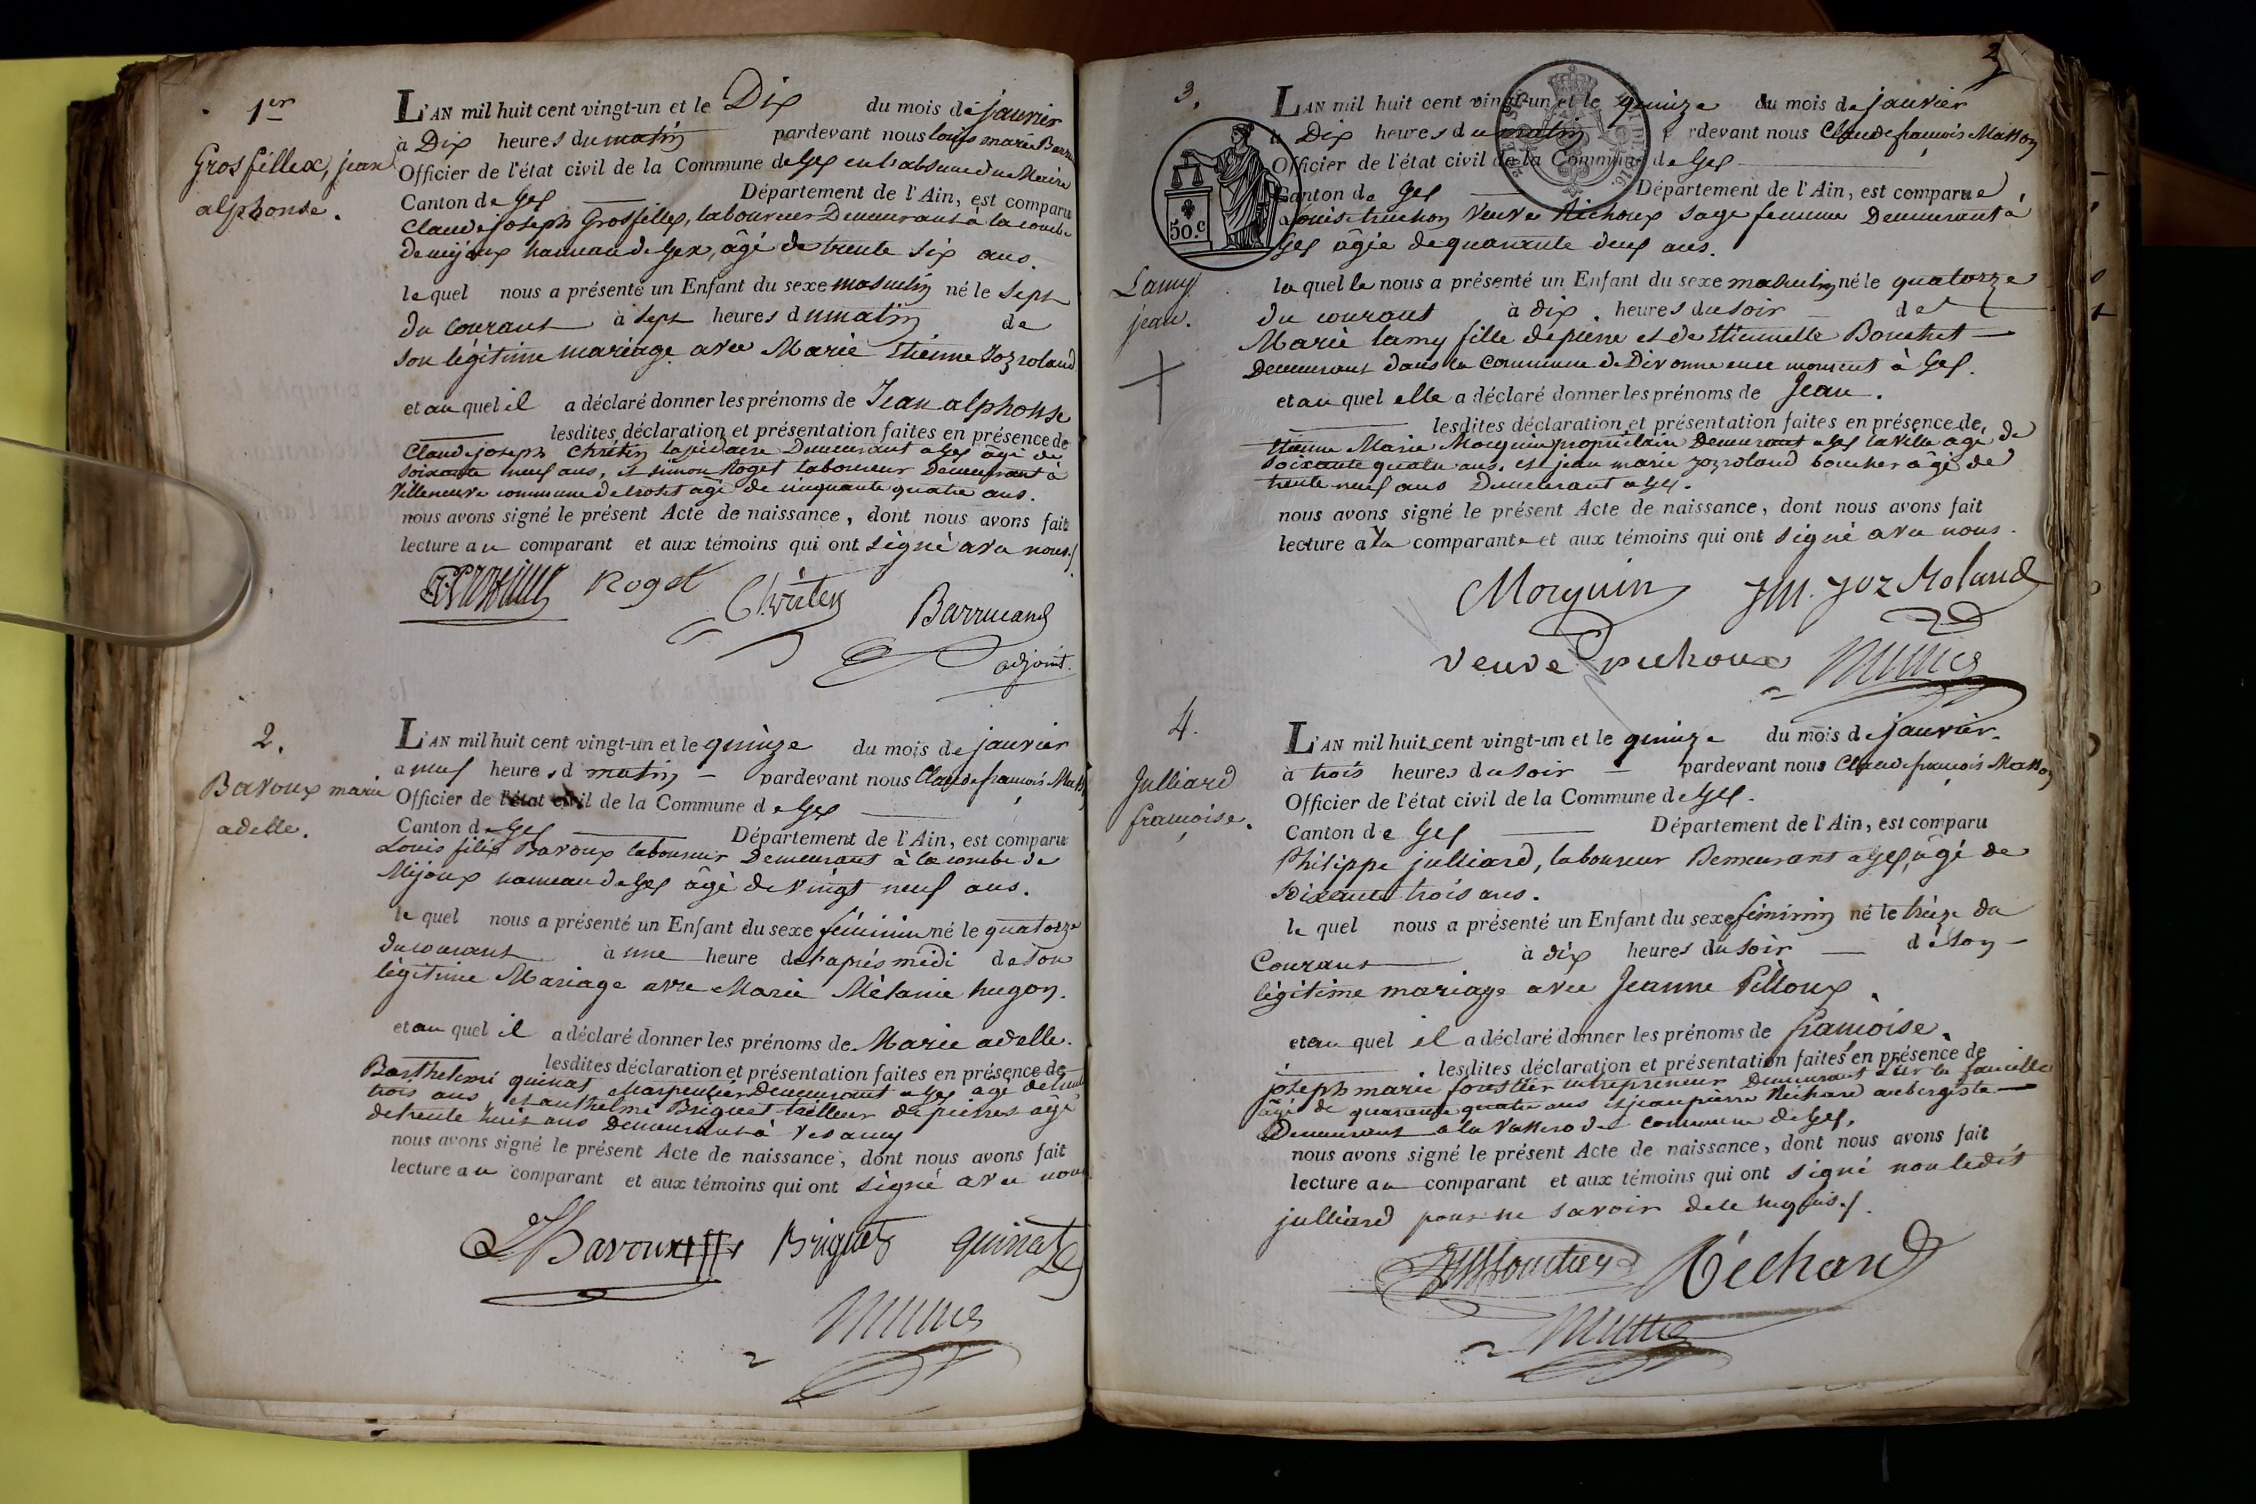 1er
Grosfillex, jean
alphonse.
L'AN mil huit cent vingt-un et le Dix du mois de janvier
à Dix heures du matin pardevant nous louis marie
Officier de l'état civil de la Commune de Gex en l'absence du Maire
Canton de Gex Département de l'Ain, est comparu
Claude joseph Grosfillex, laboureur Demeurant à la combe
de mijoux hameau de Gex, âgé de trente six ans.
le quel nous a présenté un Enfant du sexe masculin né le sept
du courant à sept heures du matin de
son légitime mariage avec Marie Etienne Jozroland
et au quel il a déclaré donner les prénoms de Jean alphonse
lesdites déclaration et présentation faites en présence de
Claude joseph Chrétin lapidaire Demeurant a Gex âgé de
soixante neuf ans, et simon Roget laboureur Demeurant à
Villeneuve commune de âgé de cinquante quatre ans.
nous avons signé le présent Acte de naissance, dont nous avons fait
lecture au comparant et aux témoins qui ont signé avec nous./
Roget
Chrétin
Barrucand
adjoint.
2.
Bavoux marie
adelle.
L'AN mil huit cent vingt-un et le quinze du mois de janvier
a neuf heures d matin pardevant nous Claude françois
Officier de l'état civil de la Commune de Gex
Canton de Gex Département de l'Ain, est comparu
Louis félix Bavoux laboureur Demeurant à la combe de
Mijoux hameau de Gex âgé de vingt neuf ans.
le quel nous a présenté un Enfant du sexe féminin né le quatorze
du courant à une heure de l'après midi de son
légitime Mariage avec Marie Mélanie hugon.
et au quel il a déclaré donner les prénoms de Marie adelle.
lesdites déclaration et présentation faites en présence de
Barthelemi quinat charpentier Demeurant a Gex âgé de
trois ans et anthelme Briguet tailleur de pierres âgé
de trente huit ans Demeurant à Vesancy
nous avons signé le présent Acte de naissance, dont nous avons fait
lecture au comparant et aux témoins qui ont signé avec nous
Bavoux Briguet quinat
2
3.
50.c
Lamy
jean.
L'AN mil huit cent vingt-un et le quinze du mois de janvier
a Dix heures du matin rdevant nous Claude françois
Officier de l'état civil de la Commune de Gex
Canton de Gex Département de l'Ain, est comparue
Louise truchon Veuve Richoux sage femme Demeurant à
Gex âgée de quarante deux ans.
la quelle nous a présenté un Enfant du sexe masculin né le quatorze
du courant à dix heures du soir de
Marie lamy fille de pierre et de Etiennette Bouchet
Demeurant dans la commune de Divonne en ce moment à Gex.
et au quel elle a déclaré donner les prénoms de Jean.
lesdites déclaration et présentation faites en présence de
Etienne Marie Morquin propriétaire Demeurant a Gex la ville âgé de
soixante quatre ans, et jean marie jozroland boucher âgé de
trente neuf ans Demeurant a Gex.
nous avons signé le présent Acte de naissance, dont nous avons fait
lecture a la comparante et aux témoins qui ont signé avec nous.
Morquin JM. Joz Roland
veuve richoux
4.
Julliard
françoise.
L'AN mil huit cent vingt-un et le quinze du mois de janvier.
à trois heures du soir pardevant nous Claude françois
Officier de l'état civil de la Commune de Gex.
Canton de Gex Département de l'Ain, est comparu
Philippe julliard, laboureur Demeurant a Gex, âgé de
soixante trois ans.
le quel nous a présenté un Enfant du sexe féminin né le treize du
Courant à dix heures du soir de son
légitime mariage avec Jeanne Pilloux.
et au quel il a déclaré donner les prénoms de françoise.
lesdites déclaration et présentation faites en présence de
joseph marie entrepreneur Demeurant sur la faucille
âgé de quarante quatre ans et jean pierre Réchard aubergiste
Demeurant a la commune de Gex,
nous avons signé le présent Acte de naissance, dont nous avons fait
lecture au comparant et aux témoins qui ont signé non ledit
julliard pour ne savoir de ce requis./.
Réchard